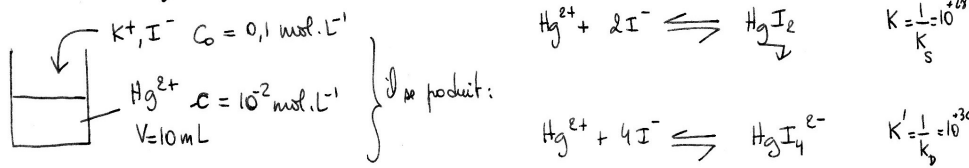 K⁺, I⁻ C₀ = 0,1 mol.L⁻¹
Hg²⁺ C = 10⁻² mol.L⁻¹
V=10mL
il se produit :
Hg²⁺ + 2I⁻ ⇌ HgI₂ K = 1/Ks = 10⁺²⁸
Hg²⁺ + 4I⁻ ⇌ HgI₄²⁻ K' = 1/K_D = 10⁺³⁰